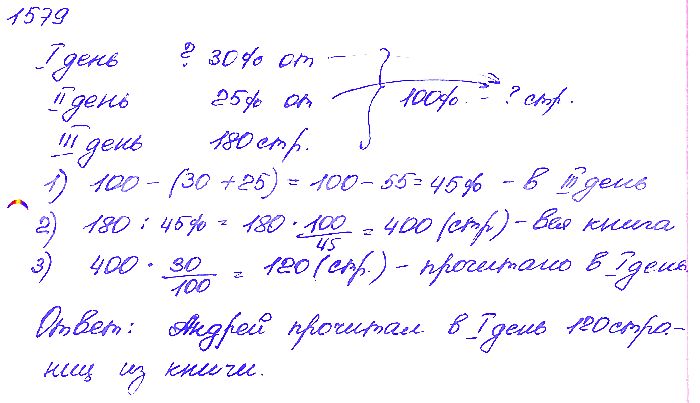 1579
I день ? 30% от —
II день 25% от 100% - ? стр.
III день 180 стр.
1) 100 - (30 + 25) = 100 - 55 = 45% - в III день
2) 180 : 45% = 180 · 100/45 = 400 (стр) - вся книга
3) 400 · 30/100 = 120 (стр.) - прочитано в I день
Ответ: Андрей прочитал в I день 120 стра-
ниц из книги.